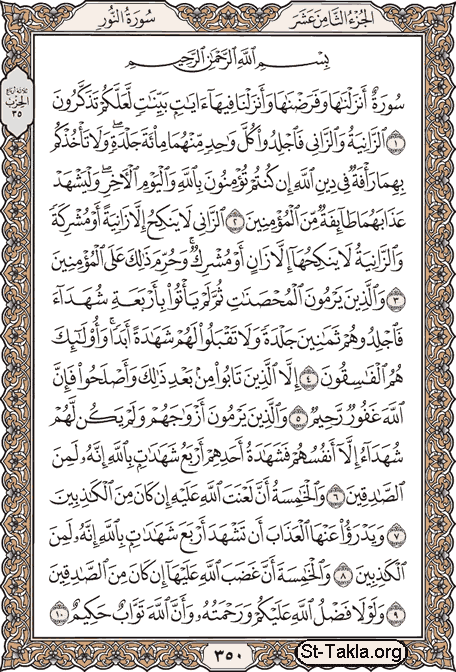 الجُزْءُ الثَّامِنَ عَشَرَ
سُورَةُ النُّورِ
ثلاثة أرباع
الحزب
٣٥
بِسْمِ ٱللَّهِ ٱلرَّحْمَٰنِ ٱلرَّحِيمِ
سُورَةٌ أَنزَلْنَٰهَا وَفَرَضْنَٰهَا وَأَنزَلْنَا فِيهَآ ءَايَٰتٍۭ بَيِّنَٰتٍ لَّعَلَّكُمْ تَذَكَّرُونَ
١ ٱلزَّانِيَةُ وَٱلزَّانِى فَٱجْلِدُوا۟ كُلَّ وَٰحِدٍ مِّنْهُمَا مِا۟ئَةَ جَلْدَةٍ ۖ وَلَا تَأْخُذْكُم
بِهِمَا رَأْفَةٌ فِى دِينِ ٱللَّهِ إِن كُنتُمْ تُؤْمِنُونَ بِٱللَّهِ وَٱلْيَوْمِ ٱلْءَاخِرِ ۖ وَلْيَشْهَدْ
عَذَابَهُمَا طَآئِفَةٌ مِّنَ ٱلْمُؤْمِنِينَ ٢ ٱلزَّانِى لَا يَنكِحُ إِلَّا زَانِيَةً أَوْ مُشْرِكَةً
وَٱلزَّانِيَةُ لَا يَنكِحُهَآ إِلَّا زَانٍ أَوْ مُشْرِكٌ ۚ وَحُرِّمَ ذَٰلِكَ عَلَى ٱلْمُؤْمِنِينَ
٣ وَٱلَّذِينَ يَرْمُونَ ٱلْمُحْصَنَٰتِ ثُمَّ لَمْ يَأْتُوا۟ بِأَرْبَعَةِ شُهَدَآءَ
فَٱجْلِدُوهُمْ ثَمَٰنِينَ جَلْدَةً وَلَا تَقْبَلُوا۟ لَهُمْ شَهَٰدَةً أَبَدًا ۚ وَأُو۟لَٰٓئِكَ
هُمُ ٱلْفَٰسِقُونَ ٤ إِلَّا ٱلَّذِينَ تَابُوا۟ مِنۢ بَعْدِ ذَٰلِكَ وَأَصْلَحُوا۟ فَإِنَّ
ٱللَّهَ غَفُورٌ رَّحِيمٌ ٥ وَٱلَّذِينَ يَرْمُونَ أَزْوَٰجَهُمْ وَلَمْ يَكُن لَّهُمْ
شُهَدَآءُ إِلَّآ أَنفُسُهُمْ فَشَهَٰدَةُ أَحَدِهِمْ أَرْبَعُ شَهَٰدَٰتٍۭ بِٱللَّهِ ۙ إِنَّهُۥ لَمِنَ
ٱلصَّٰدِقِينَ ٦ وَٱلْخَٰمِسَةُ أَنَّ لَعْنَتَ ٱللَّهِ عَلَيْهِ إِن كَانَ مِنَ ٱلْكَٰذِبِينَ
٧ وَيَدْرَؤُا۟ عَنْهَا ٱلْعَذَابَ أَن تَشْهَدَ أَرْبَعَ شَهَٰدَٰتٍۭ بِٱللَّهِ ۙ إِنَّهُۥ لَمِنَ
ٱلْكَٰذِبِينَ ٨ وَٱلْخَٰمِسَةَ أَنَّ غَضَبَ ٱللَّهِ عَلَيْهَآ إِن كَانَ مِنَ ٱلصَّٰدِقِينَ
٩ وَلَوْلَا فَضْلُ ٱللَّهِ عَلَيْكُمْ وَرَحْمَتُهُۥ وَأَنَّ ٱللَّهَ تَوَّابٌ حَكِيمٌ ١٠
٣٥٠
St-Takla.org